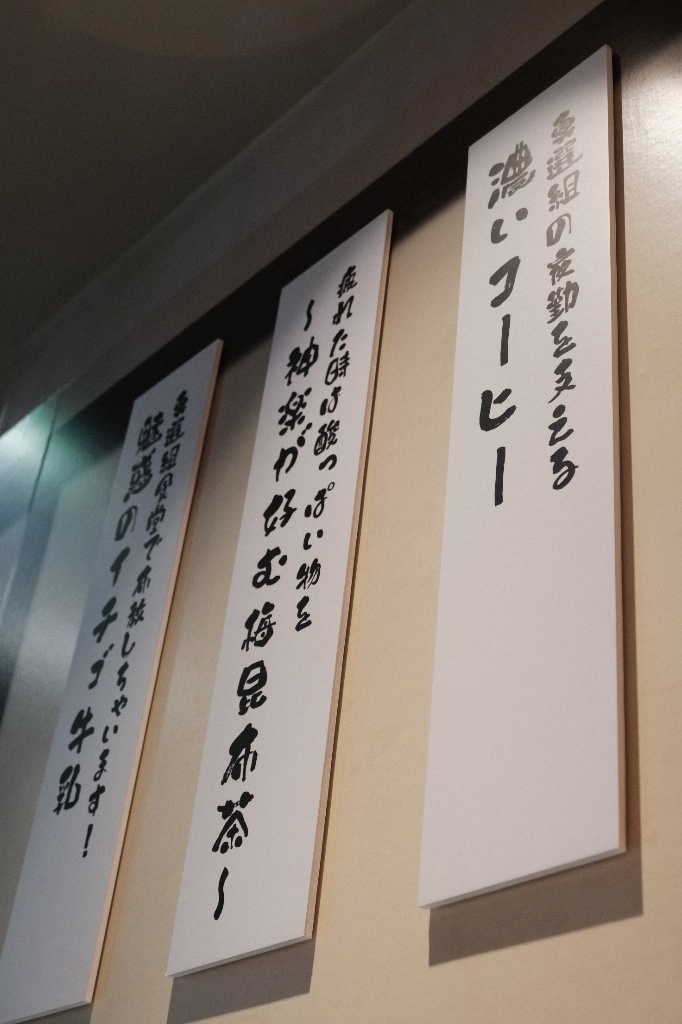 真選組の夜勤を支える
濃いコーヒー
疲れた時は酸っぱい物を
～神楽が好む梅昆布茶～
真選組食堂で布教しちゃいます！
魅惑のイチゴ牛乳